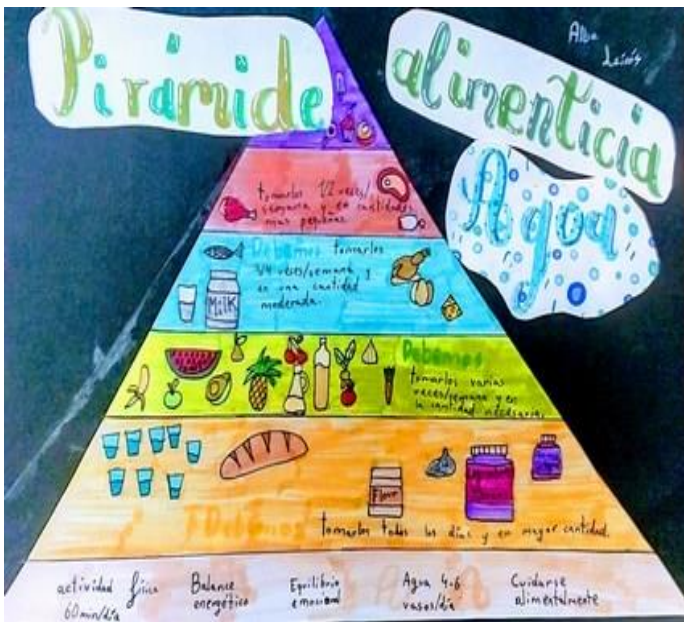 Pirámide
alimenticia
Alba
Agua
tomarlos 1/2 veces/
semana y en cantidades
mas pequeñas.
Debemos tomarlos
3/4 veces/semana y
en una cantidad
moderada.
MiLK
Debemos
tomarlos varias
veces/semana y en
la cantidad necesaria.
Flour
Debemos
tomarlos todos los días y en mayor cantidad.
actividad física
60min/día
Balance
energético
Equilibrio
emocional
Agua 4-6
vasos/día
Cuidarse
alimentalmente